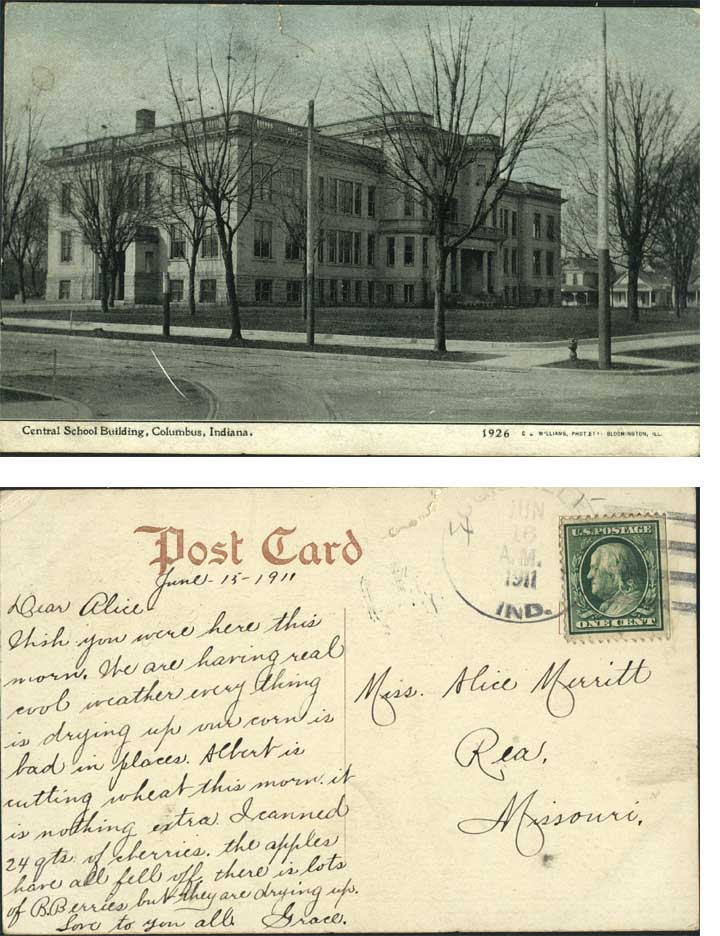 Central School Building, Columbus, Indiana.
1926
WILLIAMS, BLOOMINGTON, ILL.
Post Card
June 15-1911
Dear Alice.
Wish you were here this
morn. We are having real
cool weather every thing
is drying up our corn is
bad in places. Albert is
cutting wheat this morn. it
is nothing extra. I canned
24 qts. of cherries. the apples
have all fell off, there is lots
of B.Berries but they are drying up.
Love to you all. Grace.
JUN
16
A.M.
1911
IND.
U.S. POSTAGE
ONE CENT
Miss. Alice Merritt
Rea,
Missouri.